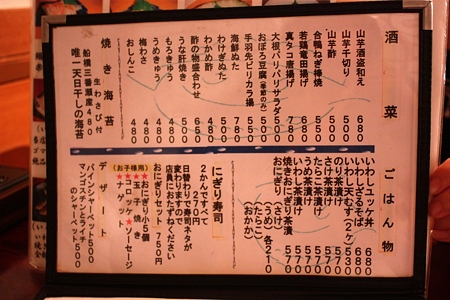 酒菜
山芋酒盗和え 680
山芋千切り 500
山芋酢 500
合鴨ねぎ棒焼 680
若鶏竜田揚げ 780
真タコ唐揚げ 680
大根パリパリサラダ 500
おぼろ豆腐
手羽先ピリカラ揚 550
海鮮ぬた 780
わけぎぬた 480
わかめ酢 480
酢の物盛合わせ 680
うな肝焼き
もろきゅう 480
うめきゅう 480
梅わさ 480
おしんこ 480
焼き海苔
生わさび付
船橋三番瀬産 480
唯一天日干しの海苔
ごはん物
いわしユッケ丼 680
いわしざるそば 680
いわしおむす(2ケ) 530
のり茶漬け 570
さけ茶漬け 570
たらこ茶漬け 570
うめ茶漬け 570
いわし茶漬け 570
焼きおにぎり茶漬 570
おにぎり さけ
(うめ) 各210
たらこ
おかか
にぎり寿司
2かんですべて
270円
日替わりで寿司ネタが
変わりますので
店員におたずねください
おにぎりセット 750円
(お子様用)
★おにぎり小5個
★玉子焼き
★コロッケ★ソーセージ
★ナゲット
デザート
パインシャーベット 500
マンゴスチンとライチ
のシャーベット 500